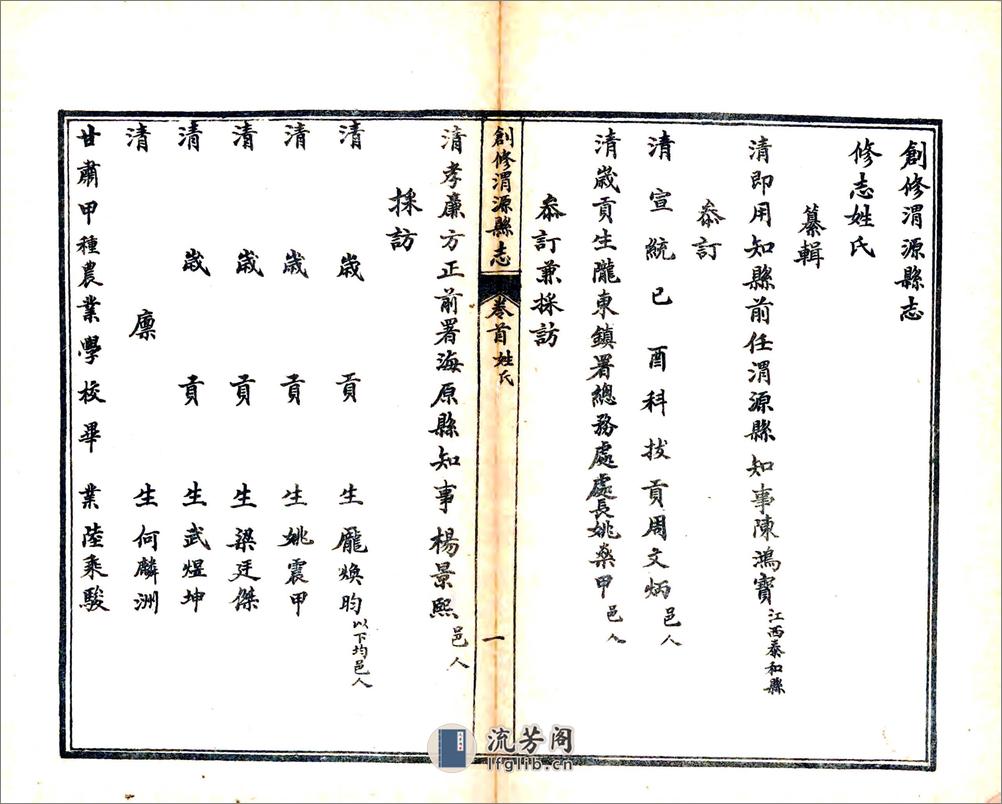 創修渭源縣志
修志姓氏
纂輯
清即用知縣前任渭源縣知事陳鴻寶江西泰和縣
叅訂
清宣統己酉科拔貢周文炳邑人
清歲貢生隴東鎮署總務處處長姚燊甲邑人
叅訂兼採訪
創修渭源縣志 卷首 姓氏 一
清孝廉方正前署海原縣知事楊景熙邑人
採訪
清歲貢生龐煥昀以下均邑人
清歲貢生姚震甲
清歲貢生梁廷傑
清歲貢生武煜坤
清廪生何麟洲
甘肅甲種農業學校畢業陸乘駿
流芳阁
lfglib.cn